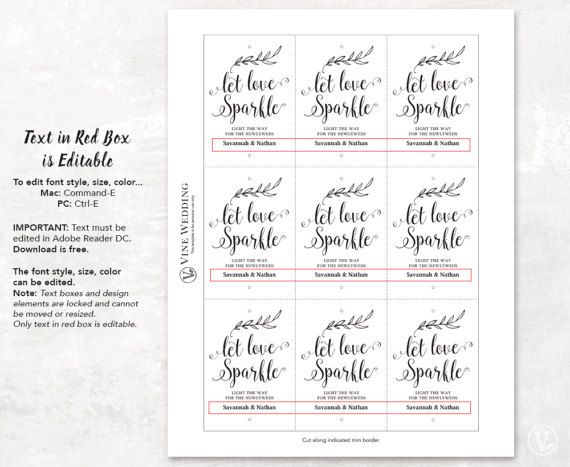 Text in Red Box
is Editable
To edit font style, size, color...
Mac: Command-E
PC: Ctrl-E
IMPORTANT: Text must be
edited in Adobe Reader DC.
Download is free.
The font style, size, color
can be edited.
Note: Text boxes and design
elements are locked and cannot
be moved or resized.
Only text in red box is editable.
VINE WEDDING
let love let love let love
Sparkle Sparkle Sparkle
LIGHT THE WAY LIGHT THE WAY LIGHT THE WAY
FOR THE NEWLYWEDS FOR THE NEWLYWEDS FOR THE NEWLYWEDS
Savannah & Nathan Savannah & Nathan Savannah & Nathan
let love let love let love
Sparkle Sparkle Sparkle
LIGHT THE WAY LIGHT THE WAY LIGHT THE WAY
FOR THE NEWLYWEDS FOR THE NEWLYWEDS FOR THE NEWLYWEDS
Savannah & Nathan Savannah & Nathan Savannah & Nathan
let love let love let love
Sparkle Sparkle Sparkle
LIGHT THE WAY LIGHT THE WAY LIGHT THE WAY
FOR THE NEWLYWEDS FOR THE NEWLYWEDS FOR THE NEWLYWEDS
Savannah & Nathan Savannah & Nathan Savannah & Nathan
Cut along indicated trim border